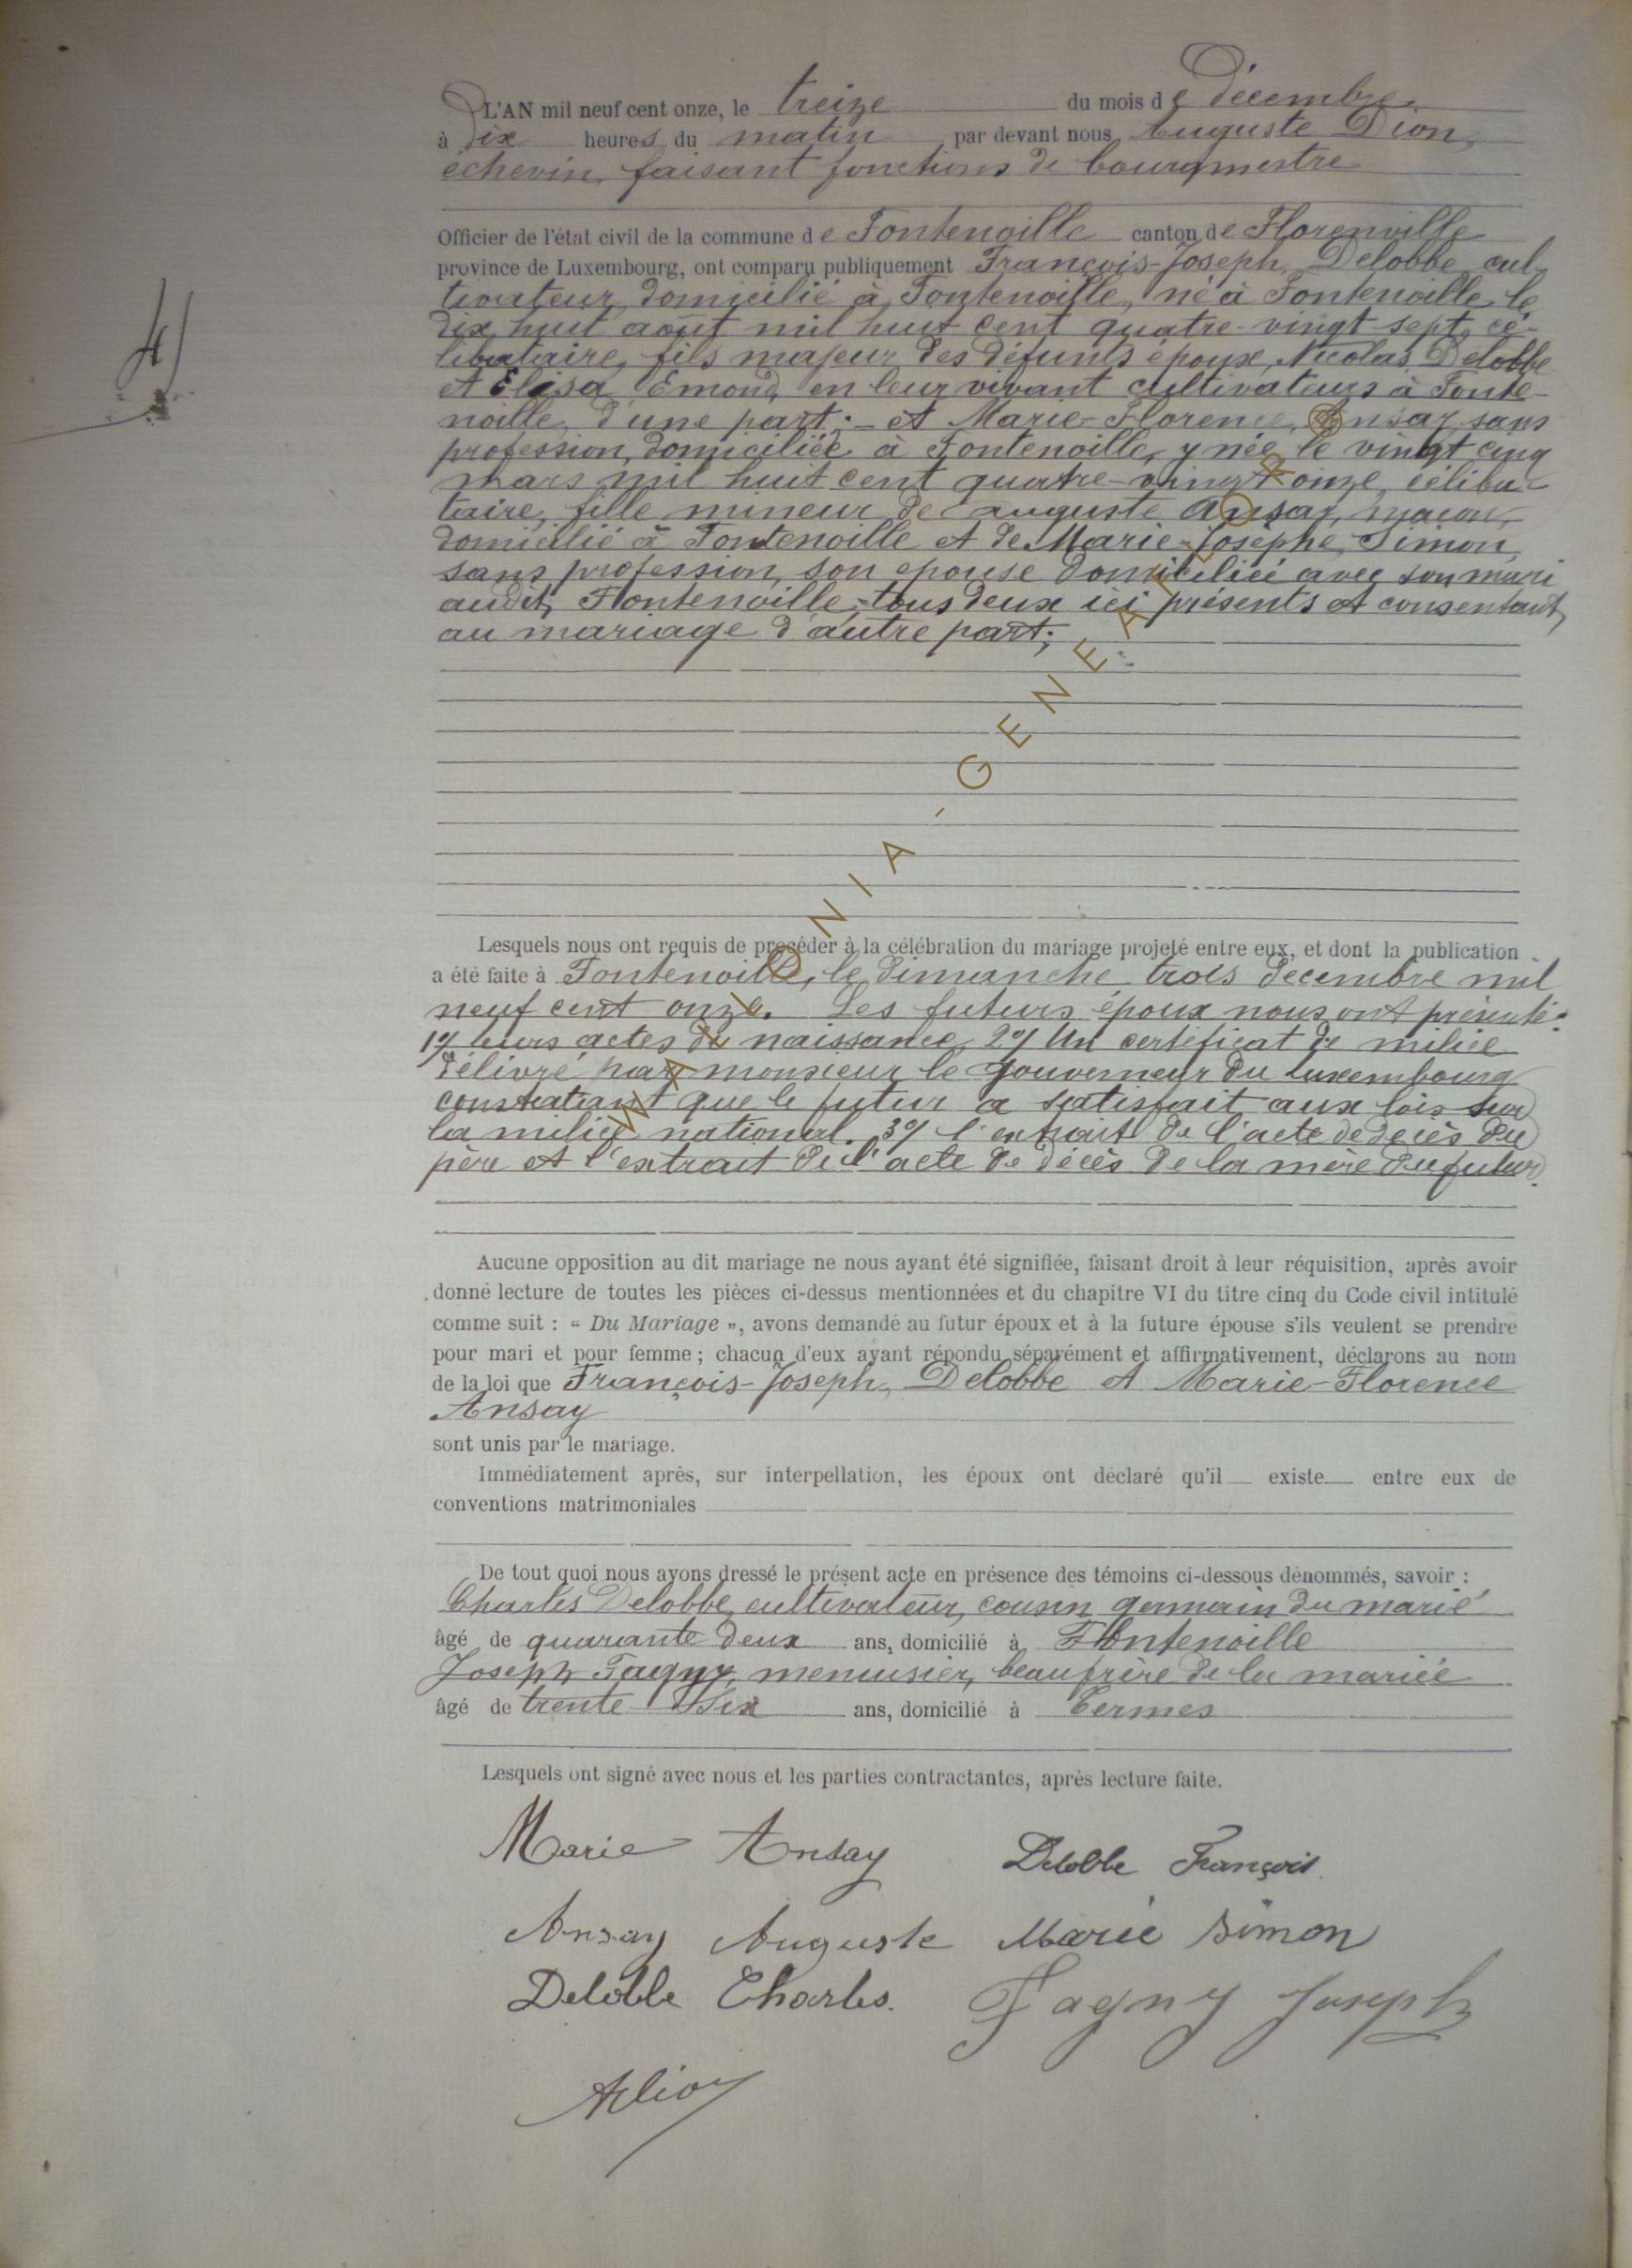 L'AN mil neuf cent onze, le treize du mois de décembre
à dix heures du matin par devant nous, Auguste Dion,
échevin, faisant fonctions de bourgmestre
Officier de l'état civil de la commune de Fontenoille canton de Florenville
province de Luxembourg, ont comparu publiquement François-Joseph, Delobbe cul-
tivateur, domicilié à Fontenoille, né à Fontenoille, le
dix huit août mil huit cent quatre-vingt sept, cé-
libataire, fils majeur des défunts époux, Nicolas, Delobbe
et Elisa, Emond, en leur vivant cultivateurs à Fonte-
noille, d'une part; - et Marie-Florence, Ansay, sans
profession, domiciliée à Fontenoille, y née le vingt cinq
mars mil huit cent quatre-vingt onze, céliba-
taire, fille mineur de Auguste Ansay, maçon,
domicilié à Fontenoille et de Marie-Josèphe, Simon,
sans profession, son épouse domiciliée avec son mari
audit, Fontenoille, tous deux ici présents et consentant,
au mariage d'autre part;
Lesquels nous ont requis de procéder à la célébration du mariage projeté entre eux, et dont la publication
a été faite à Fontenoille, le dimanche trois décembre mil
neuf cent onze. Les futurs époux nous ont présenté:
1°/ leurs actes de naissance, 2°/ Un certificat de milice
délivré par monsieur le Gouverneur du Luxembourg
constatant que le futur a satisfait aux lois sur
la milice national. 3°/ l'extrait de l'acte de décès du
père et l'extrait de l'acte de décès de la mère du futur.
Aucune opposition au dit mariage ne nous ayant été signifiée, faisant droit à leur réquisition, après avoir
donné lecture de toutes les pièces ci-dessus mentionnées et du chapitre VI du titre cinq du Code civil intitulé
comme suit : « Du Mariage », avons demandé au futur époux et à la future épouse s'ils veulent se prendre
pour mari et pour femme ; chacun d'eux ayant répondu séparément et affirmativement, déclarons au nom
de la loi que François-Joseph, Delobbe et Marie-Florence
Ansay
sont unis par le mariage.
Immédiatement après, sur interpellation, les époux ont déclaré qu'il existe entre eux de
conventions matrimoniales
De tout quoi nous avons dressé le présent acte en présence des témoins ci-dessous dénommés, savoir :
Charles Delobbe, cultivateur, cousin germain du marié
âgé de quarante deux ans, domicilié à Fontenoille
Joseph Fagny, menuisier, beaufrère de la mariée
âgé de trente six ans, domicilié à Termes
Lesquels ont signé avec nous et les parties contractantes, après lecture faite.
Marie Ansay Delobbe François
Ansay Auguste Marie Simon
Delobbe Charles. Fagny Joseph
ADion
WALLONIA - GENEALOR